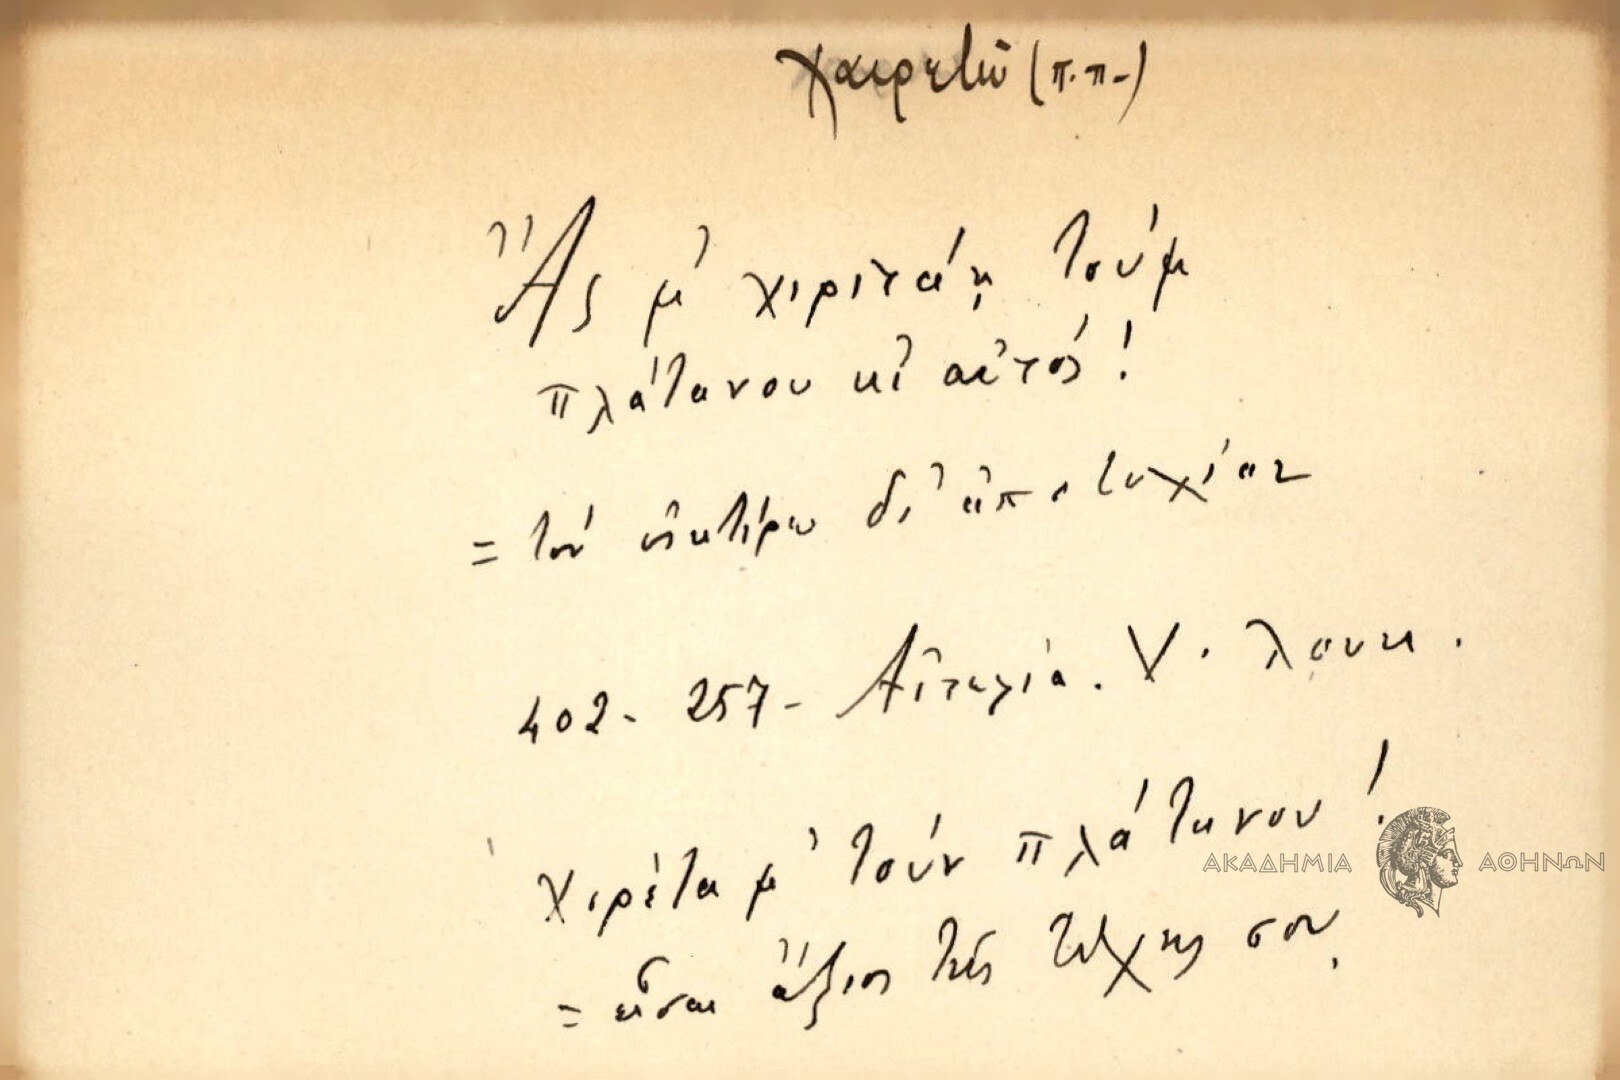 χαιρετῶ (π.π.)
Ἄς μ' χιριτάῃ τούμ
πλάτανου κι αὐτός!
= τόν οἰκτίρω δι' ἀποτυχίαν
402 - 257 - Αἰτωλία. Χ. Λουκ.
Χιρέτα μ' τούν πλάτανου!
= εἶσαι ἄξιος τῆς τύχης σου.
ΑΚΑΔΗΜΙΑ ΑΘΗΝΩΝ